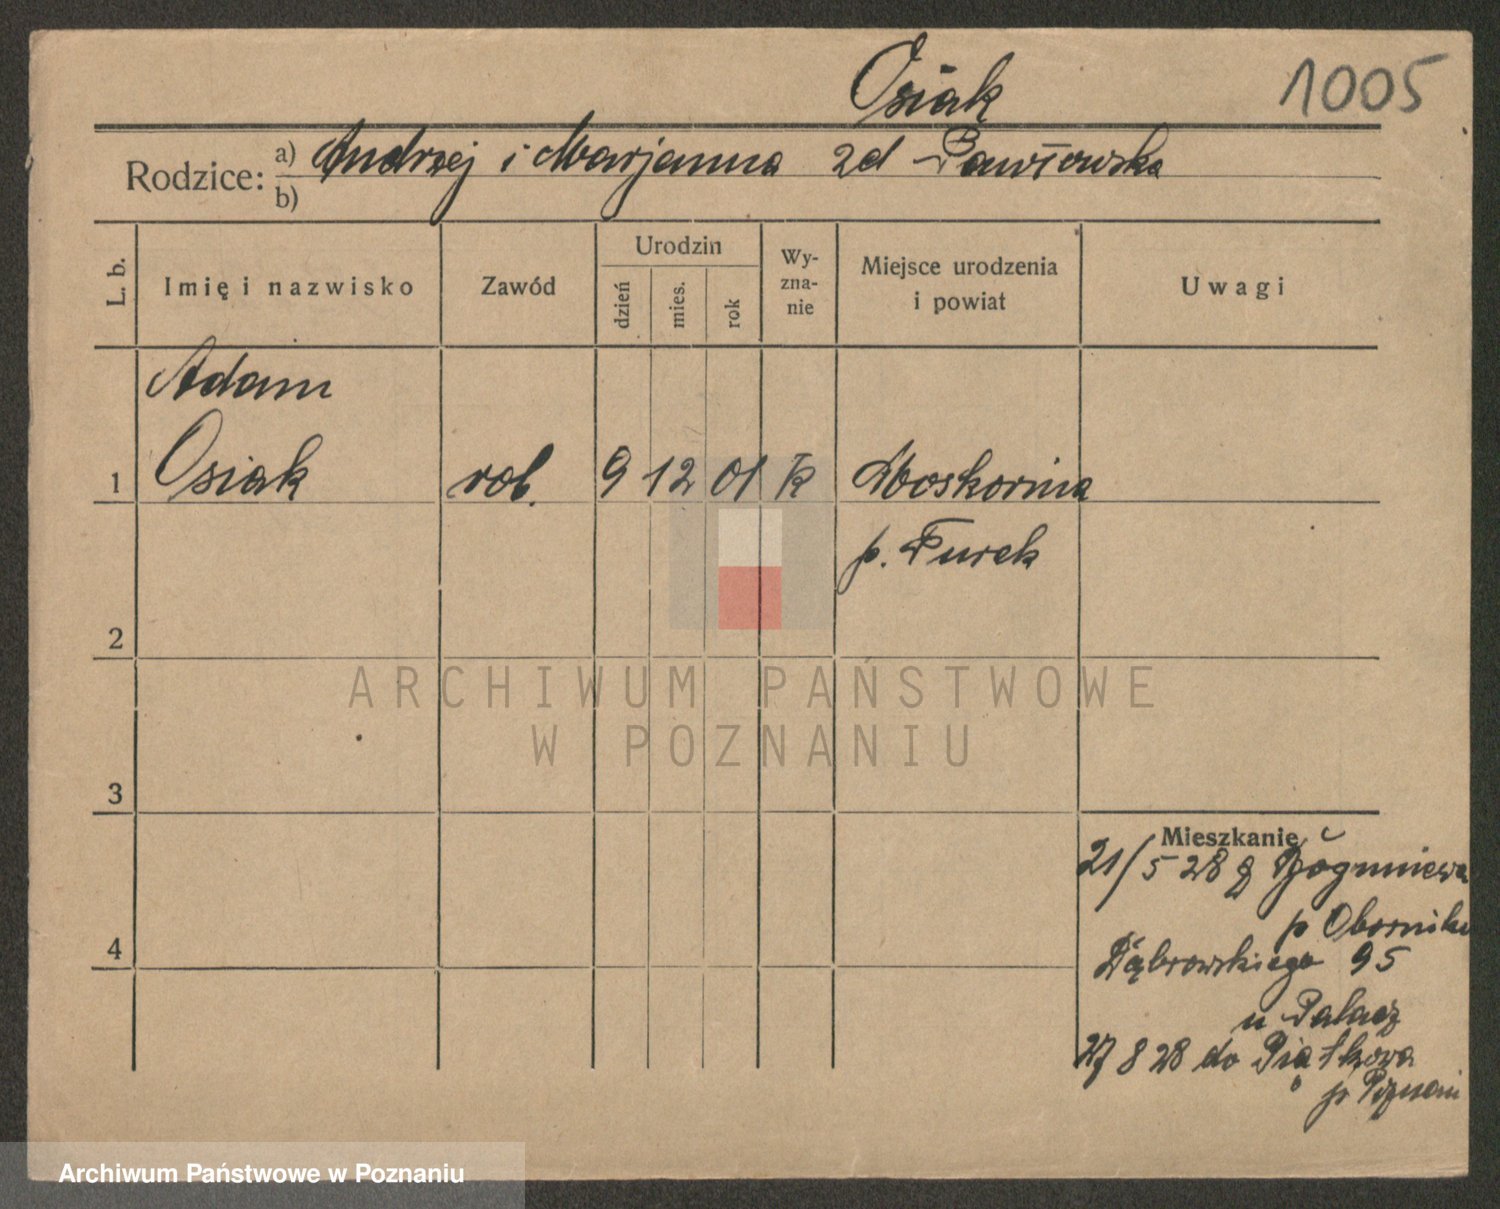 Osiak
1005
Rodzice: a) Andrzej i Marjanna zd Pawłowska
b)
L. b.
Imię i nazwisko
Zawód
Urodzin
dzień
mies.
rok
Wy-
zna-
nie
Miejsce urodzenia
i powiat
Uwagi
Adam
1 Osiak rob. 9 12 01 k Moskornia
p. Turek
2
ARCHIWUM PAŃSTWOWE
W POZNANIU
3
Mieszkanie
21/5 28 z Bogniewa
p Oborniki
4
Dąbrowskiego 95
u Pałacz
27 8 28 do Piątkowa
p Poznań
Archiwum Państwowe w Poznaniu